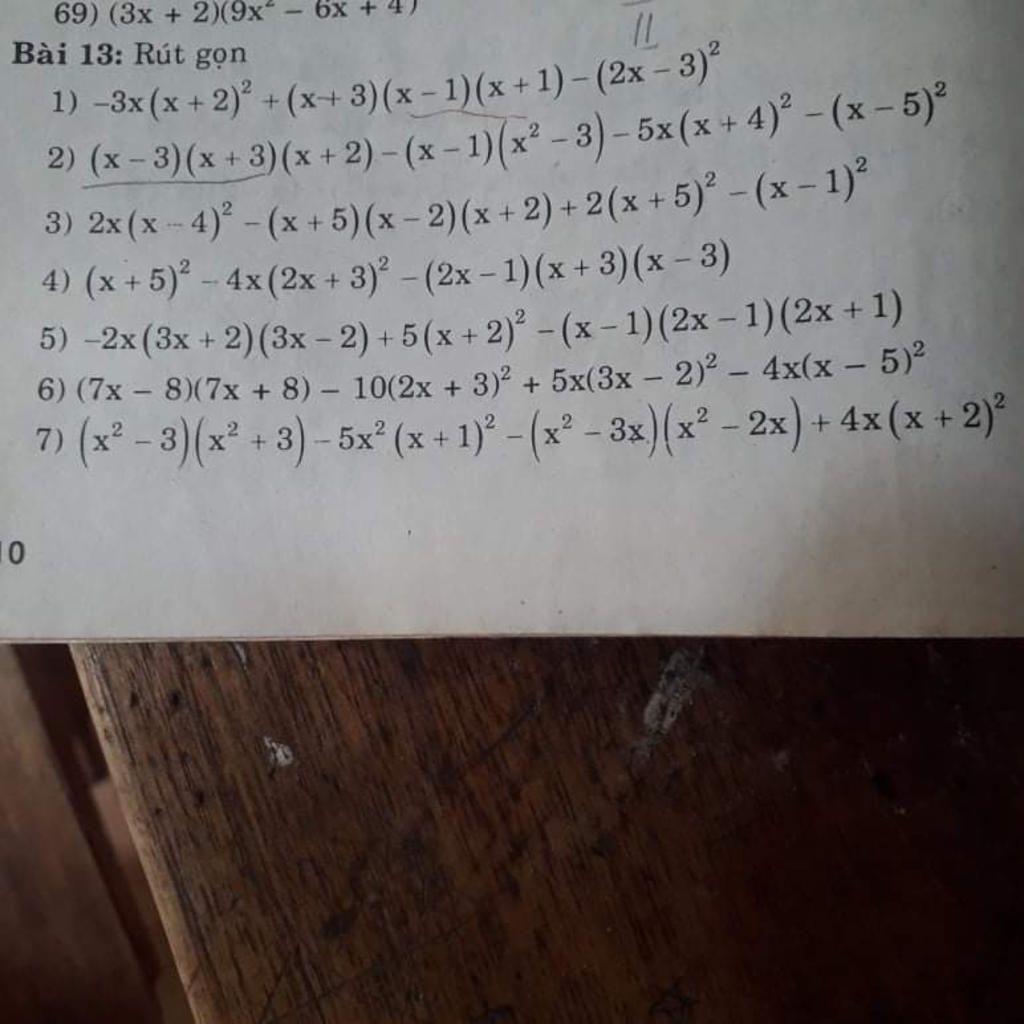 69) (3x + 2)(9x² − 6x + 4)
11
Bài 13: Rút gọn
1) −3x(x + 2)² + (x + 3)(x − 1)(x + 1) − (2x − 3)²
2) (x − 3)(x + 3)(x + 2) − (x − 1)(x² − 3) − 5x(x + 4)² − (x − 5)²
3) 2x(x − 4)² − (x + 5)(x − 2)(x + 2) + 2(x + 5)² − (x − 1)²
4) (x + 5)² − 4x(2x + 3)² − (2x − 1)(x + 3)(x − 3)
5) −2x(3x + 2)(3x − 2) + 5(x + 2)² − (x − 1)(2x − 1)(2x + 1)
6) (7x − 8)(7x + 8) − 10(2x + 3)² + 5x(3x − 2)² − 4x(x − 5)²
7) (x² − 3)(x² + 3) − 5x²(x + 1)² − (x² − 3x)(x² − 2x) + 4x(x + 2)²
10